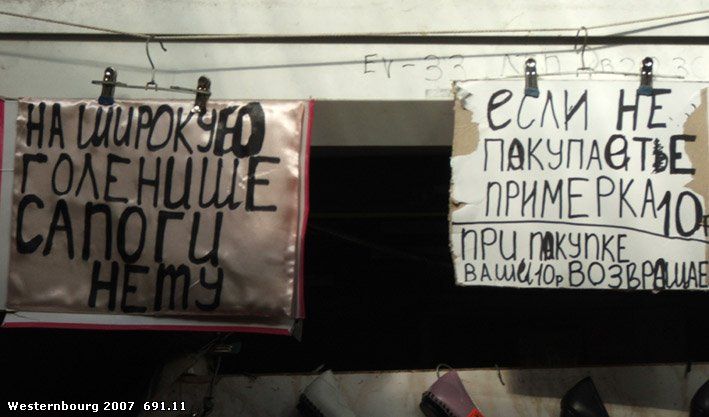 НА ШИРОКУЮ
ГОЛЕНИЩЕ
САПОГИ
НЕТУ
ЕСЛИ НЕ
ПОКУПАЕТЬЕ
ПРИМЕРКА 10р
ПРИ ПОКУПКЕ
ВАШИ 10р ВОЗВРАЩАЕ
EV-33
Westernbourg 2007 691.11